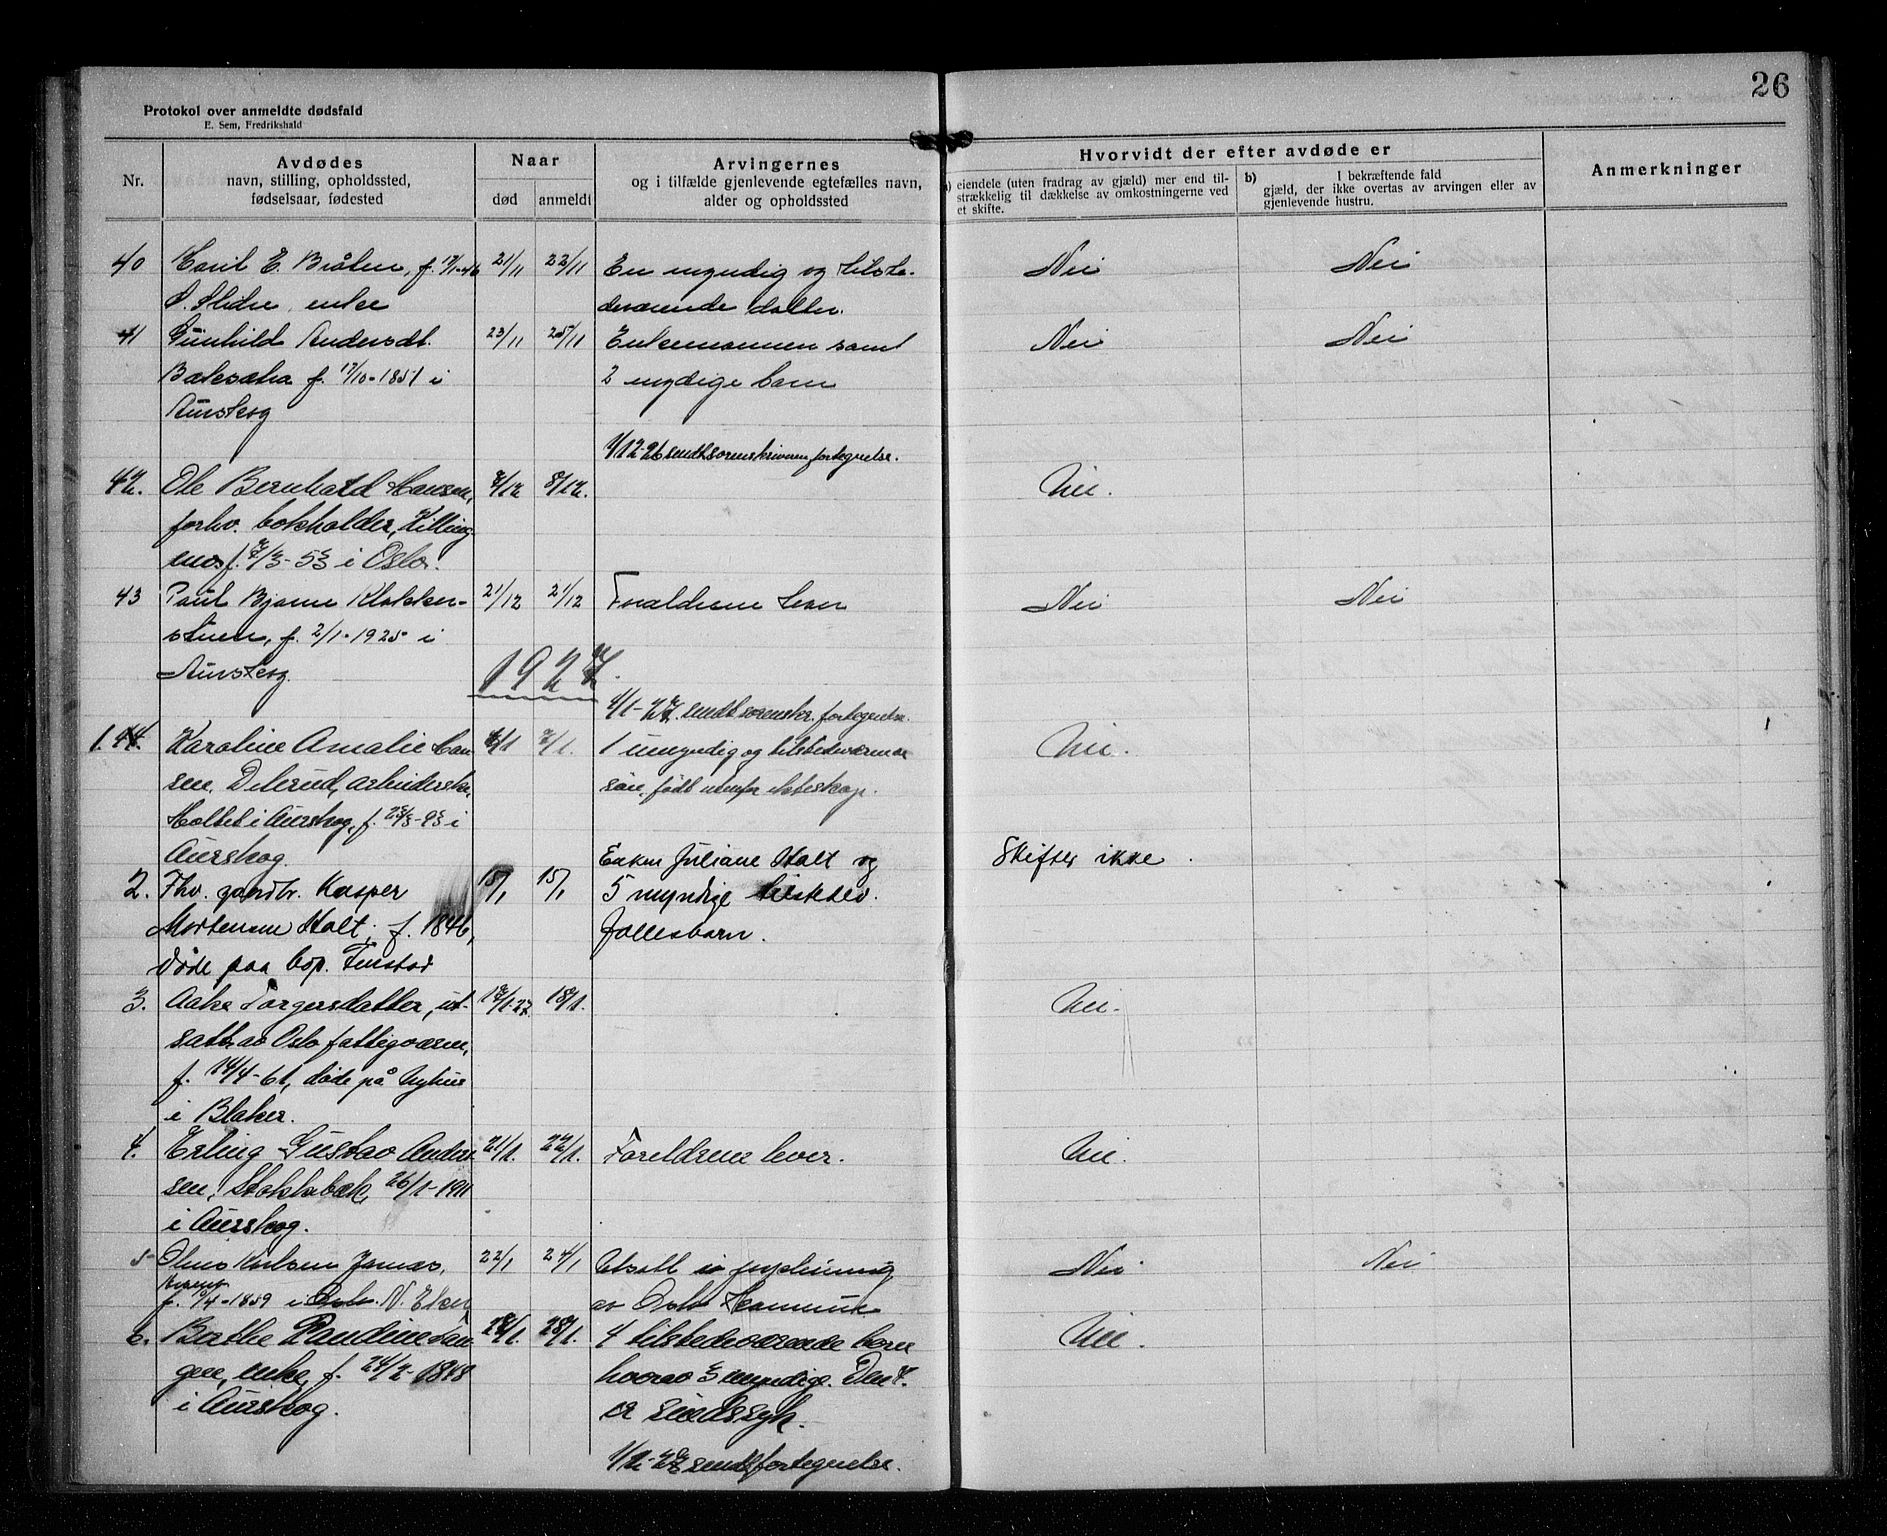 26
Protokol over anmeldte dødsfald
E. Sem, Fredrikshald
Nr.
Avdødes
navn, stilling, opholdssted,
fødselsaar, fødested
Naar
død
anmeldt
Arvingernes
og i tilfælde gjenlevende egtefælles navn,
alder og opholdssted
Hvorvidt der efter avdøde er
a) eiendele (uten fradrag av gjæld) mer end til-
strækkelig til dækkelse av omkostningerne ved
et skifte.
b) I bekræftende fald
gjæld, der ikke overtas av arvingen eller av
gjenlevende hustru.
Anmerkninger
40 E. Bråten, f. 21/11 22/11 En myndig og tilste- Nei Nei
S. Slidre, enke deværende datter.
41 Gunhild Andersdt. 23/11 25/11 Enkemannen samt Nei Nei
f. 17/10-1851 i 2 mydige barn
Aurskog
1/12-26 sendt sorenskriveren fortegnelse.
42. Ole Bernhard Hansen, 7/12 8/12. Nei.
forhv. bokholder, Killing
mo, f. 7/3-53 i Oslo.
43 Paul Bjarne Klokker- 21/12 21/12 Foreldrene lever Nei Nei
stuen, f. 2/1-1925 i
Aurskog.
1927.
4/1-27. sendt sorenskr. fortegnelse.
1. 44. Karoline Amalie Han 6/1 7/1. 1 umyndig og tilstedeværende Nei.
sen, arbeiderske,
Holtet i Aurskog, f. 25/3-93 i søn, født utenfor ekteskap.
Aurskog.
Enken Juliane Holt og Skiftes ikke.
2. Fhv. gardbr. Kasper 15/1 15/1 5 myndige tilsteded.
Mortensen Holt, f. 1846, fællesbarn.
døde paa bop. Finstad
3. Aake Torgersdatter, ut- 17/1-27. 18/1. Nei.
satt av Oslo fattigvæsen,
f. 14/4-61, døde på Nyhus
i Blaker.
4. Erling Gustav Ander 21/1. 22/1. Foreldrene lever. Nei.
sen, Stokkebæk, 26/1-1911
i Aurskog.
5 Karlsen 22/1 24/1 Utsatt i forpleining Nei Nei
f. /4-1859 i Oslo. N. Eker av Oslo Kommune
6. Berthe Pandine Han 28/1. 4 tilstedeværende barn Nei.
gen, enke, f. 24/2-1848 hvorav 3 myndige. Den 4.
i Aurskog. er sindssyk.
1/2-27 sendt fortegnelse.